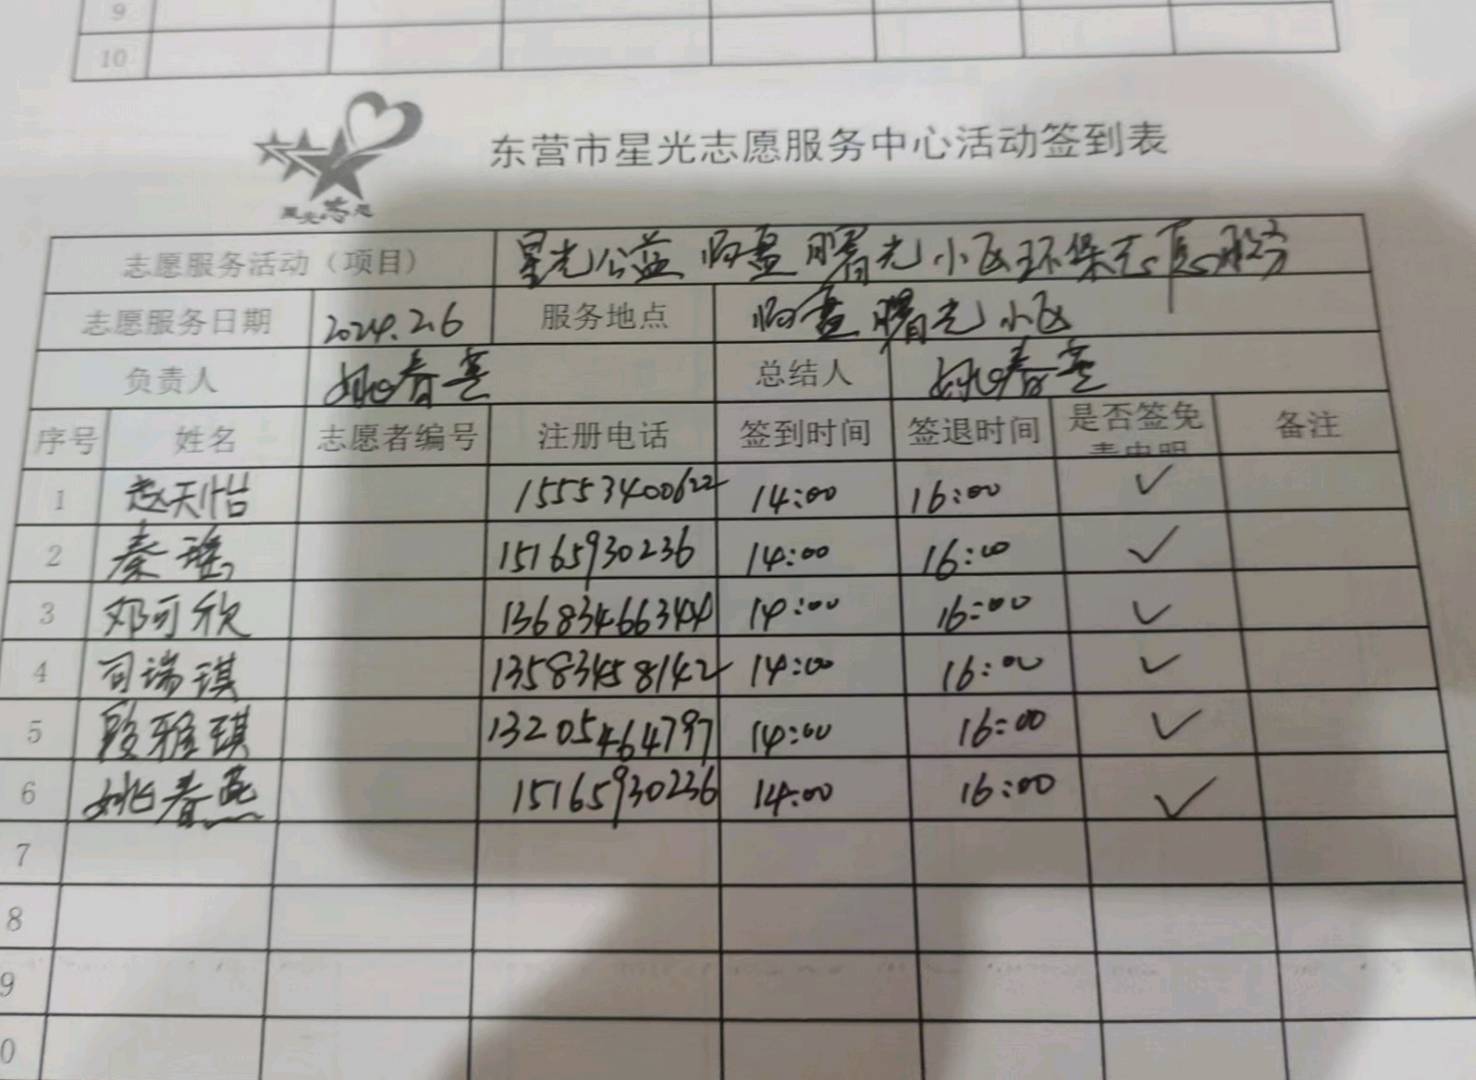 9
10
星光志愿
东营市星光志愿服务中心活动签到表
志愿服务活动（项目） 星光公益临盘曙光小区环保志愿服务
志愿服务日期 2024.2.6 服务地点 临盘曙光小区
负责人 姚春燕 总结人 姚春燕
序号 姓名 志愿者编号 注册电话 签到时间 签退时间 是否签免责申明 备注
1 赵天怡 15553400622 14:00 16:00 ✓
2 秦瑶 15165930236 14:00 16:00 ✓
3 邓可欣 13683466344 14:00 16:00 ✓
4 司瑞琪 13583458142 14:00 16:00 ✓
5 段雅琪 13205464797 14:00 16:00 ✓
6 姚春燕 15165930236 14:00 16:00 ✓
7
8
9
0